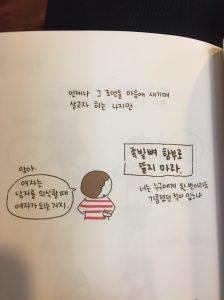 언제나 그 조언을 마음에 새기며
살고자 하는 나지만
족발뼈 함부로
뜯지 마라.
너는 누구에게 한 번이라도
기름졌던 적이 있느냐
맞아.
여자는
남자를 의식할 때
여자가 되는거지.